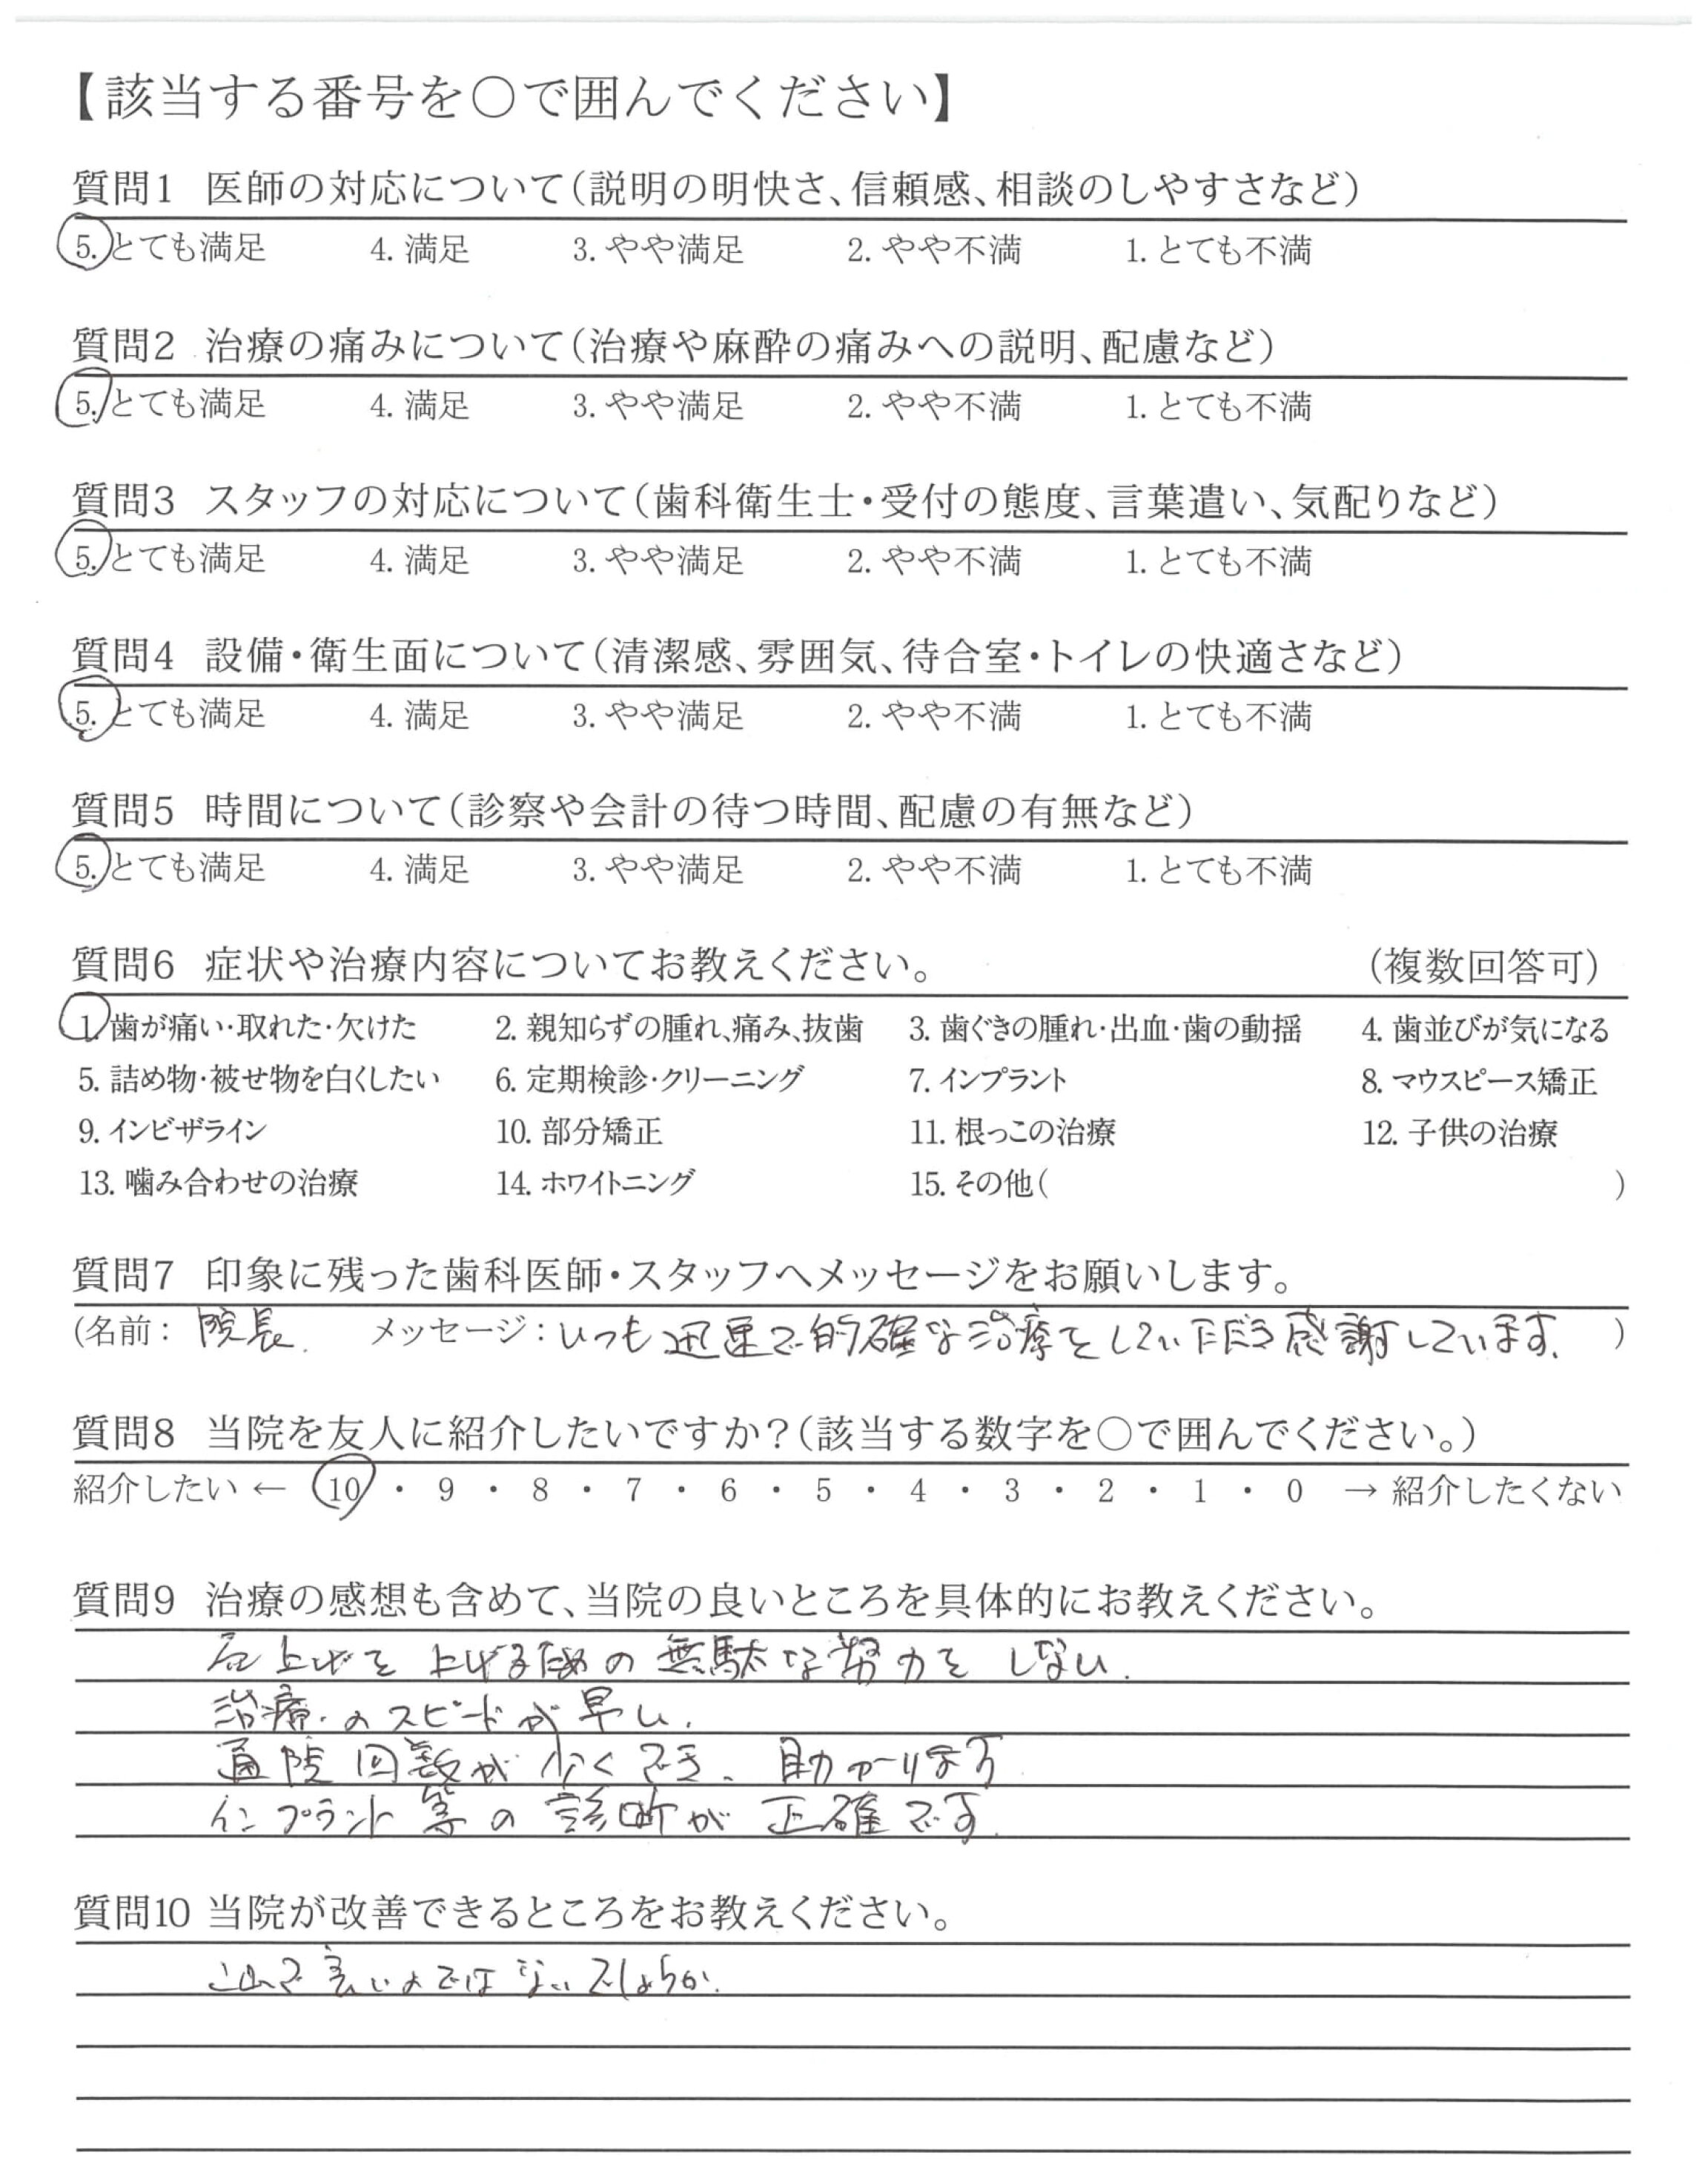 【該当する番号を○で囲んでください】
質問1 医師の対応について（説明の明快さ、信頼感、相談のしやすさなど）
5. とても満足 4. 満足 3. やや満足 2. やや不満 1. とても不満
質問2 治療の痛みについて（治療や麻酔の痛みへの説明、配慮など）
5. とても満足 4. 満足 3. やや満足 2. やや不満 1. とても不満
質問3 スタッフの対応について（歯科衛生士・受付の態度、言葉遣い、気配りなど）
5. とても満足 4. 満足 3. やや満足 2. やや不満 1. とても不満
質問4 設備・衛生面について（清潔感、雰囲気、待合室・トイレの快適さなど）
5. とても満足 4. 満足 3. やや満足 2. やや不満 1. とても不満
質問5 時間について（診察や会計の待つ時間、配慮の有無など）
5. とても満足 4. 満足 3. やや満足 2. やや不満 1. とても不満
質問6 症状や治療内容についてお教えください。 （複数回答可）
1. 歯が痛い・取れた・欠けた 2. 親知らずの腫れ、痛み、抜歯 3. 歯ぐきの腫れ・出血・歯の動揺 4. 歯並びが気になる
5. 詰め物・被せ物を白くしたい 6. 定期検診・クリーニング 7. インプラント 8. マウスピース矯正
9. インビザライン 10. 部分矯正 11. 根っこの治療 12. 子供の治療
13. 噛み合わせの治療 14. ホワイトニング 15. その他（ ）
質問7 印象に残った歯科医師・スタッフへメッセージをお願いします。
（名前： 院長. メッセージ：いつも迅速で的確な治療をしていただき感謝しています. ）
質問8 当院を友人に紹介したいですか？（該当する数字を○で囲んでください。）
紹介したい ← 10 ・ 9 ・ 8 ・ 7 ・ 6 ・ 5 ・ 4 ・ 3 ・ 2 ・ 1 ・ 0 → 紹介したくない
質問9 治療の感想も含めて、当院の良いところを具体的にお教えください。
上げを上げるための無駄な努力をしない.
治療のスピードが早い.
通院回数が少くでき、助かります
インプラント等の診断が正確です.
質問10 当院が改善できるところをお教えください。
良いのではないでしょうか.